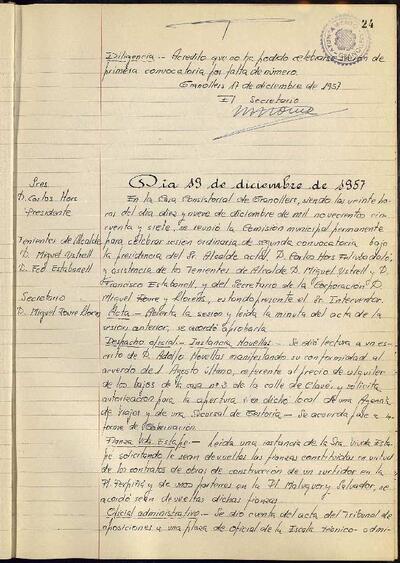 24
Diligencia.- Acredito que no ha podido celebrarse sesión de
primera convocatoria por falta de número.
Granollers 17 de diciembre de 1957
El Secretario
Dia 19 de diciembre de 1957
Sres
D. Carlos Hors
Presidente
Tenientes de Alcalde
D. Miguel Ustrell
D. Fco Estabanell
Secretario
D. Miguel Roure Llorens
En la Casa Consistorial de Granollers, siendo las veinte ho
ras del día diez y nueve de diciembre de mil novecientos cin
cuenta y siete, se reunió la Comisión municipal permanente
para celebrar sesión ordinaria de segunda convocatoria bajo
la presidencia del Sr. Alcalde actal, D. Carlos Hors
y asistencia de los Tenientes de Alcalde D. Miguel Ustrell y D.
Francisco Estabanell, y del Secretario de la Corporación D.
Miguel Roure y Llorens, estando presente el Sr. Interventor.
Acta.- Abierta la sesión y leída la minuta del acta de la
sesión anterior, se acordó aprobarla.
Despacho oficial.- Instancia Novellas.- Se dió lectura a un es-
crito de D. Adolfo Novellas manifestando su conformidad al
acuerdo de 1 Agosto último, referente al precio de alquiler
de los bajos de la casa nº 3 de la calle de Clavé, y solicita
autorización para la apertura en dicho local de una Agencia
de Viajes y de una Sucursal de Gestoria.- Se acuerda pase a in-
forme de Gobernación.
Fianza Vda. Estapé.- Leída una instancia de la Sra. Viuda Esta-
pé solicitando le sean devueltas las fianzas constituidas en virtud
de los contratos de obras de construcción de un surtidor en la
Pl. Perpiñá y de unos parterres en la Pl. Maluquer y Salvador, se
acordó sean devueltas dichas fianzas.
Oficial administrativo.- Se dió cuenta del acta del Tribunal de
oposiciones a una plaza de oficial de la Escala técnico-admi-